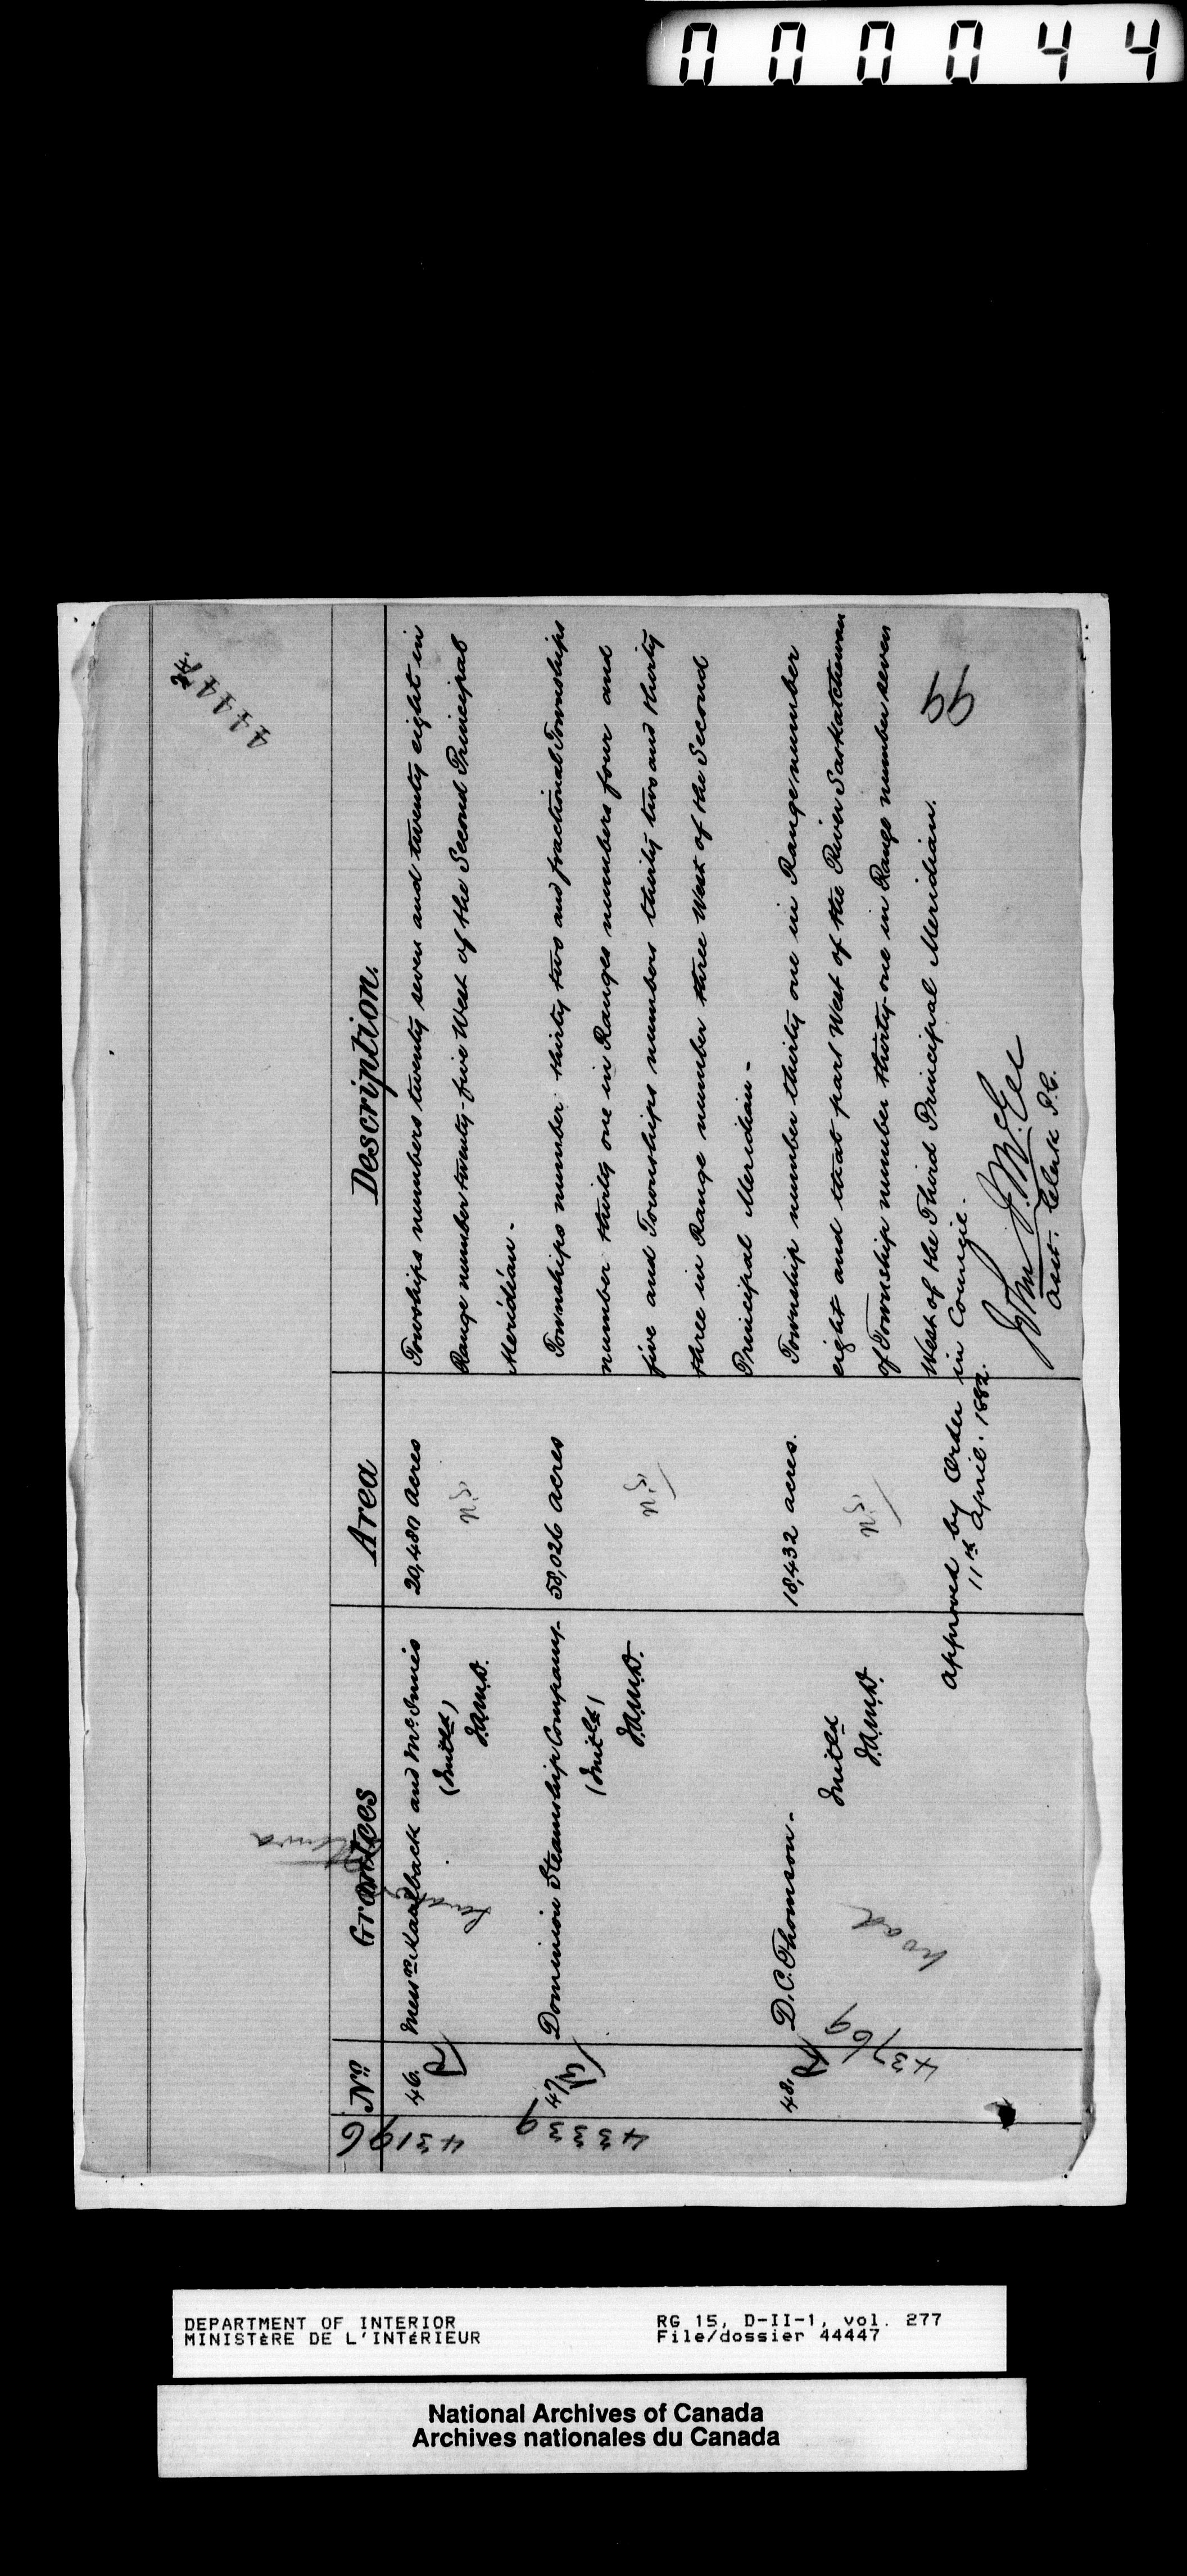 000044
44447
No. Grantees Area Description.
43196
46. Messrs Kaulback and McInnes 20,480 acres Townships numbers twenty seven and twenty eight in
(Initd) Range number twenty-five West of the Second Principal
J.A.McD. Meridian -
43339
47 Dominion Steamship Company. 58,026 acres Townships number thirty two and fractional Townships
(Initd) number thirty one in Ranges numbers four and
J.A.McD. five and Townships numbers thirty two and thirty
three in Range number three West of the Second
Principal Meridian -
48. D.C. Thomson. 18,432 acres. Township number thirty one in Range number
43769
Initd eight and that part West of the River Saskatchewan
J.A.McD. of Township number thirty-one in Range number seven
West of the Third Principal Meridian.
approved by Order in Council.
11th April. 1882.
John J. McGee
asst. Clerk P.C.
DEPARTMENT OF INTERIOR
MINISTÈRE DE L'INTÉRIEUR
RG 15, D-II-1, vol. 277
File/dossier 44447
National Archives of Canada
Archives nationales du Canada